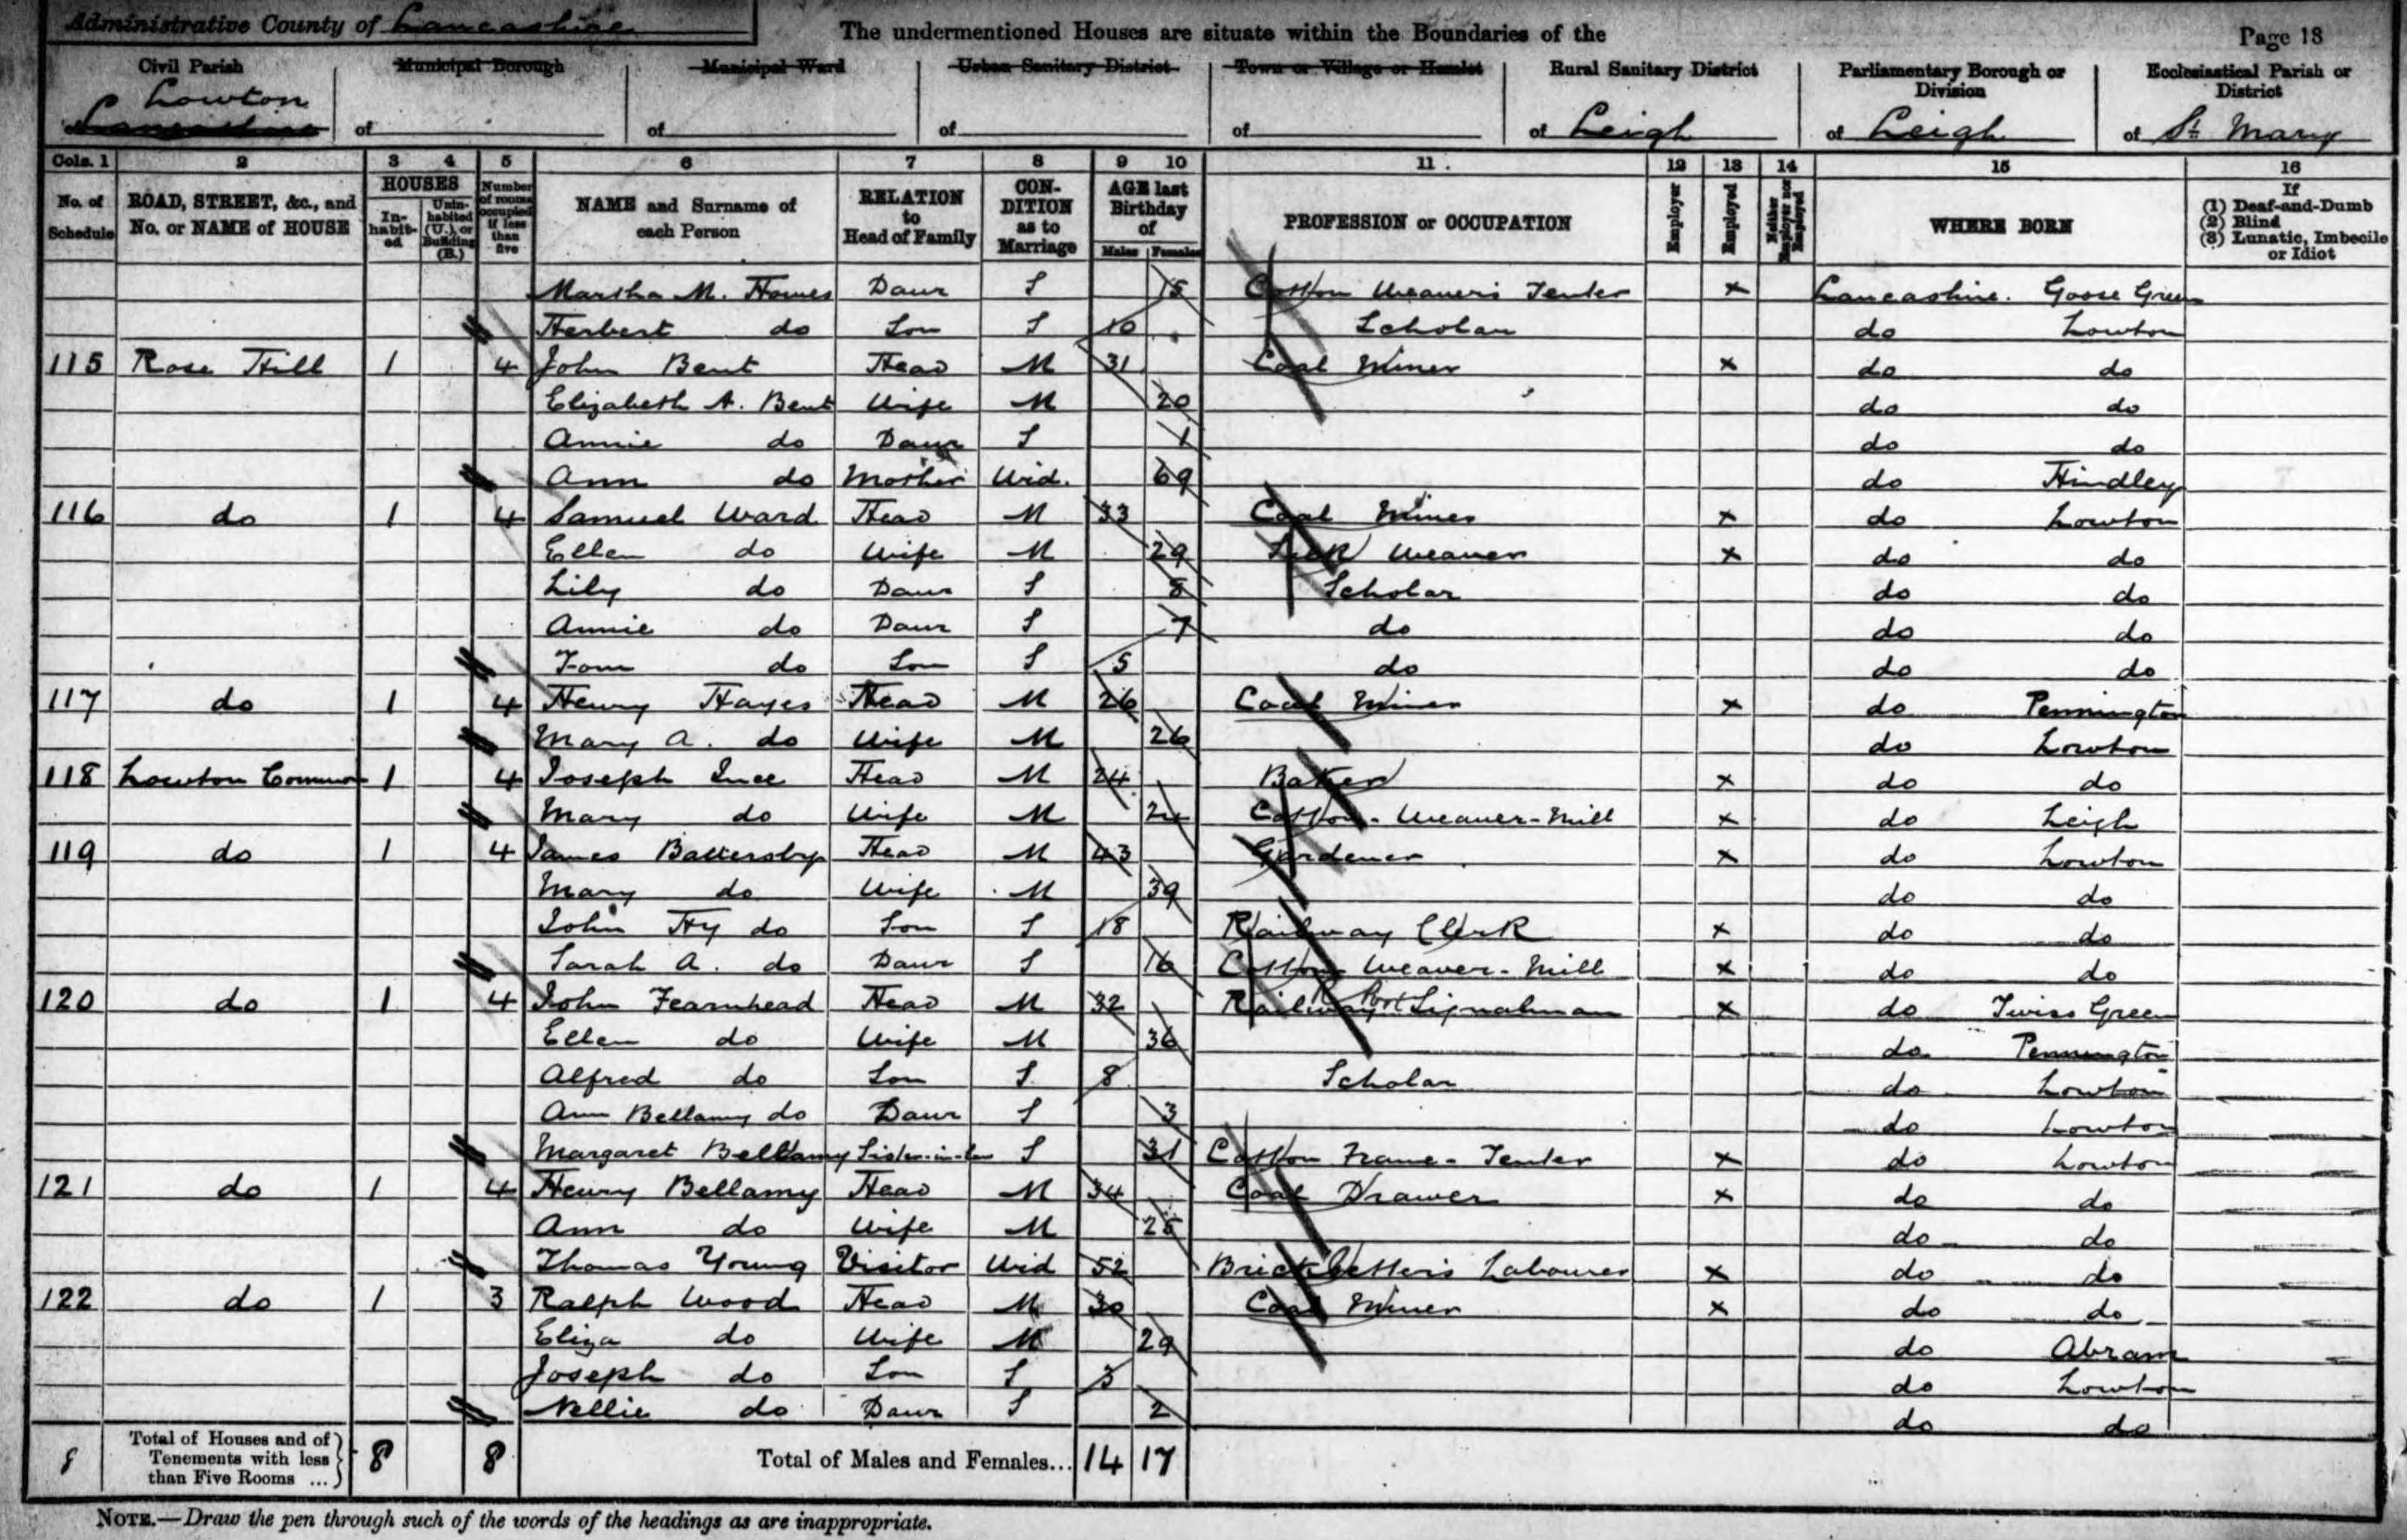 Administrative County of Lancashire
The undermentioned Houses are situate within the Boundaries of the
Page 18
Civil Parish Municipal Borough Municipal Ward Urban Sanitary District Town or Village or Hamlet Rural Sanitary District Parliamentary Borough or Division Ecclesiastical Parish or District
Lowton
of Lancashire of of of of of Leigh of Leigh of St Mary
Cols. 1 2 3 4 5 6 7 8 9 10 11 12 13 14 15 16
No. of Schedule ROAD, STREET, &c., and No. or NAME of HOUSE HOUSES Inhabited Uninhabited (U.), or Building (B.) Number of rooms occupied if less than five NAME and Surname of each Person RELATION to Head of Family CONDITION as to Marriage AGE last Birthday of Males Females PROFESSION or OCCUPATION Employer Employed Neither Employer nor Employed WHERE BORN If (1) Deaf-and-Dumb (2) Blind (3) Lunatic, Imbecile or Idiot
Martha M. Howes Daur S 15 Cotton Weaver's Tenter x Lancashire. Goose Green
Herbert do Son S 10 Scholar do Lowton
115 Rose Hill 1 4 John Bent Head M 31 Coal Miner x do do
Elizabeth A. Bent Wife M 20 do do
Annie do Daur S 1 do do
Ann do Mother Wid. 69 do Hindley
116 do 1 4 Samuel Ward Head M 33 Coal Miner x do Lowton
Ellen do Wife M 29 Silk Weaver x do do
Lily do Daur S 8 Scholar do do
Annie do Daur S 7 do do do
Tom do Son S 5 do do do
117 do 1 4 Henry Hayes Head M 26 Coal Miner x do Pennington
Mary A. do Wife M 26 do Lowton
118 Lowton Common 1 4 Joseph Ince Head M 24 Baker x do do
Mary do Wife M 24 Cotton - Weaver - Mill x do Leigh
119 do 1 4 James Battersby Head M 43 Gardener x do Lowton
Mary do Wife M 39 do do
John Hy do Son S 18 Railway Clerk x do do
Sarah A. do Daur S 16 Cotton Weaver - Mill x do do
120 do 1 4 John Fearnhead Head M 32 Railway Port Signalman x do Twiss Green
Ellen do Wife M 36 do Pennington
Alfred do Son S 8 Scholar do Lowton
Ann Bellamy do Daur S 3 do Lowton
Margaret Bellamy Sister-in-law S 31 Cotton Frame - Tenter x do Lowton
121 do 1 4 Henry Bellamy Head M 34 Coal Drawer x do do
Ann do Wife M 25 do do
Thomas Young Visitor Wid 52 Bricksetter's Labourer x do do
122 do 1 3 Ralph Wood Head M 30 Coal Miner x do do
Eliza do Wife M 29 do Abram
Joseph do Son S 3 do Lowton
Nellie do Daur S 2 do do
8 Total of Houses and of Tenements with less than Five Rooms ... 8 8 Total of Males and Females... 14 17
NOTE.—Draw the pen through such of the words of the headings as are inappropriate.